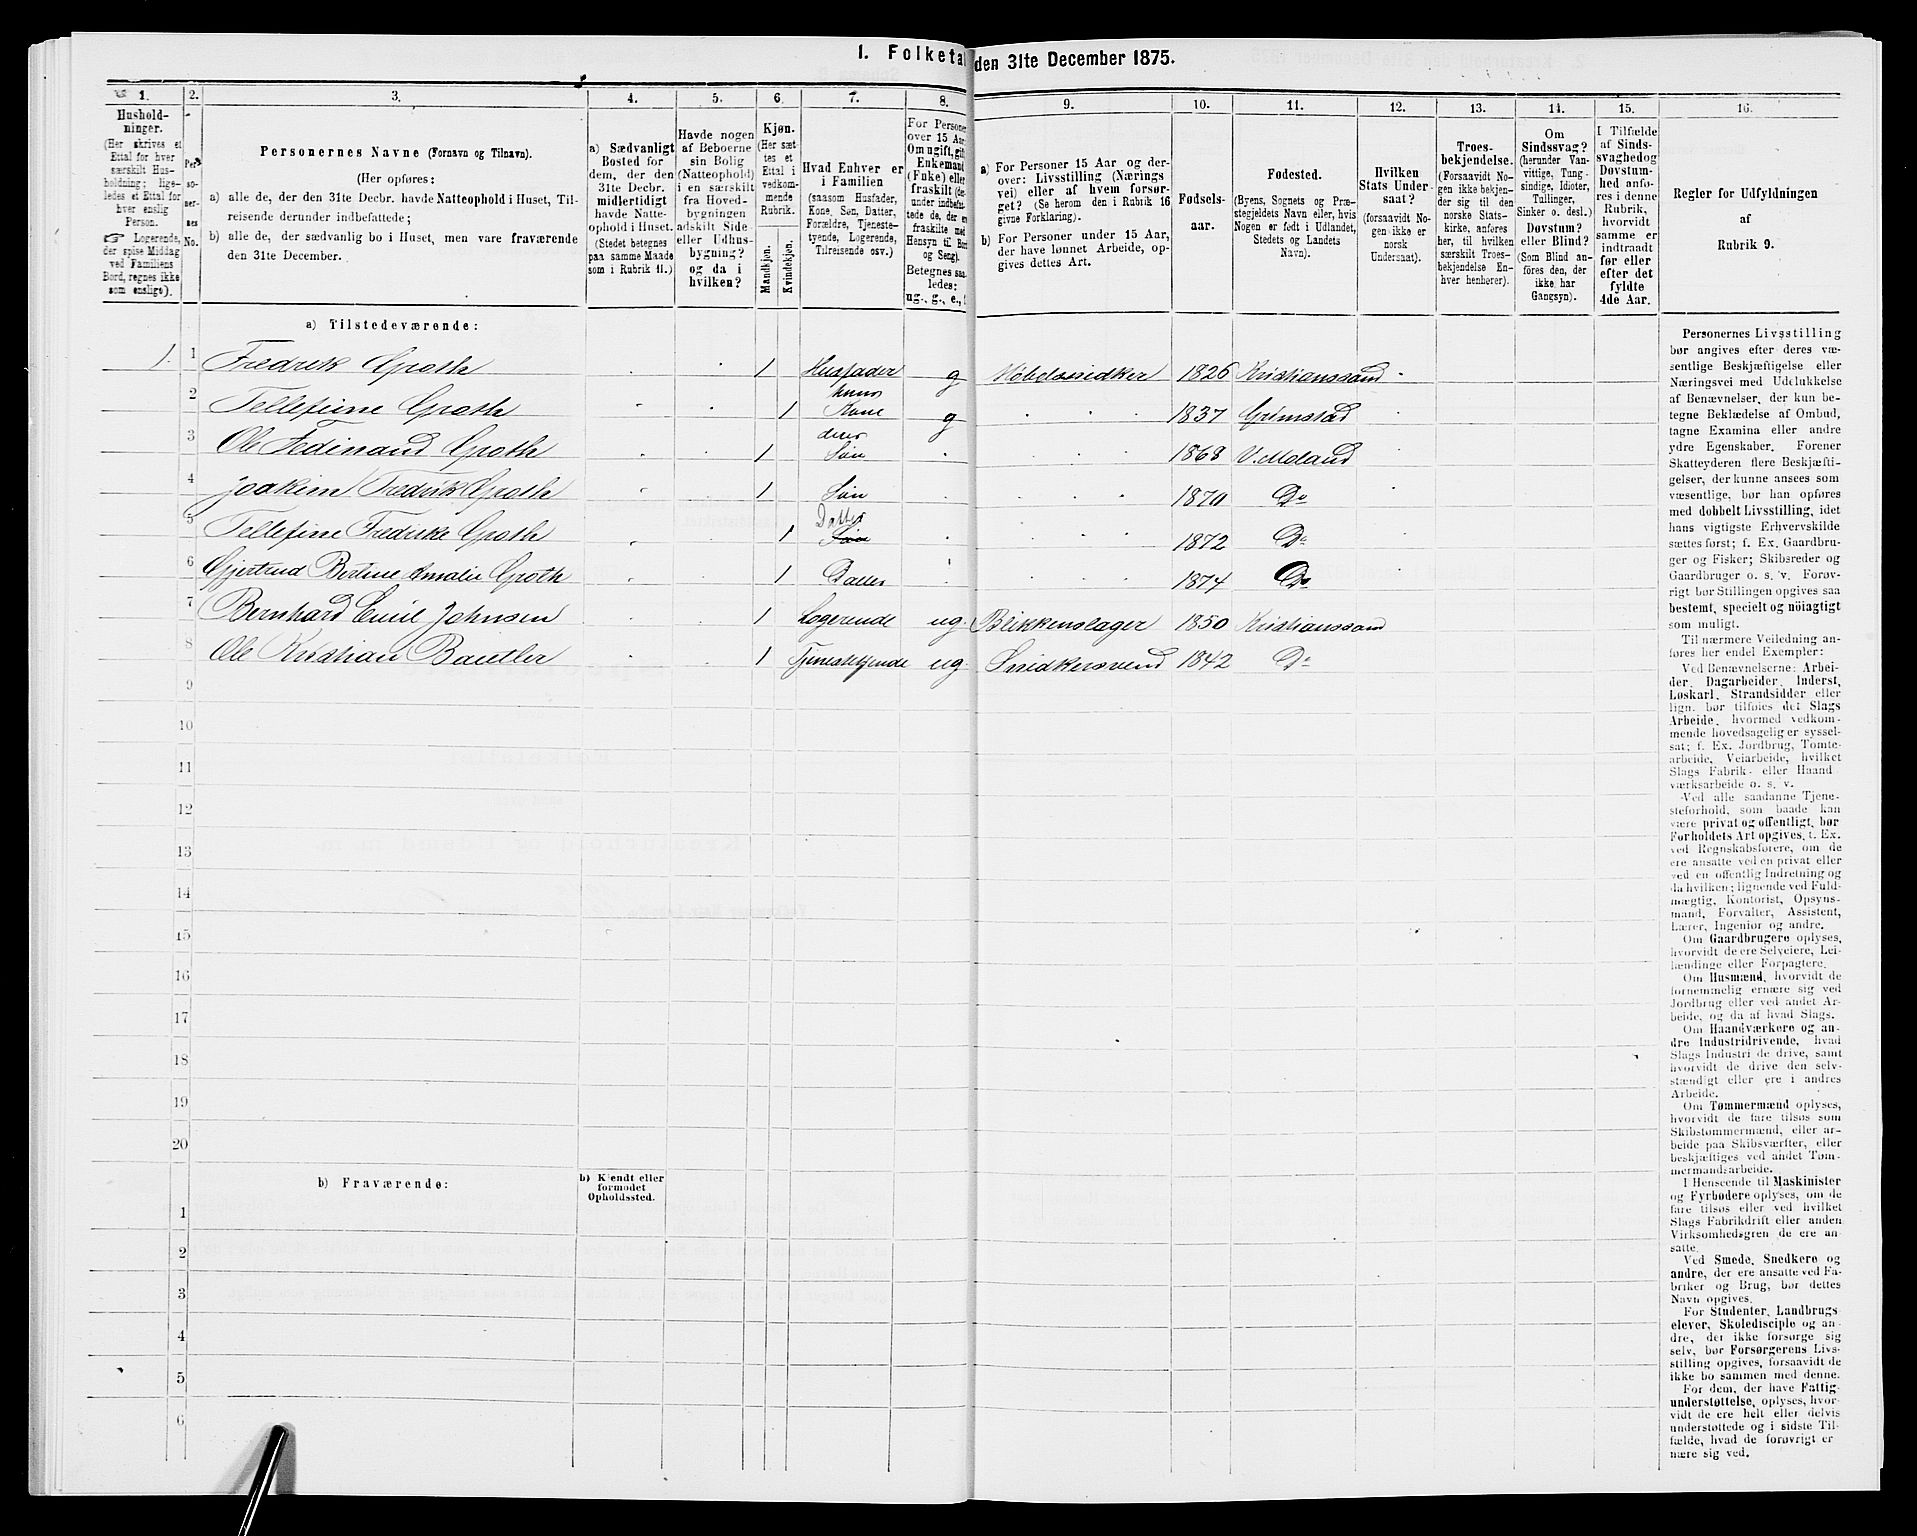 1. Folketal den 31te December 1875.
1. 2. 3. 4. 5. 6. 7. 8. 9. 10. 11. 12. 13. 14. 15. 16.
Hushold-
ninger.
(Her skrives et
Ettal for hver
særskilt Hus-
holdning; lige-
ledes et Ettal for
hver enslig
Person.
☞ Logerende,
der spise Middag
ved Familiens
Bord, regnes ikke
som enslige).
Per-
so-
ner-
nes
No.
Personernes Navne (Fornavn og Tilnavn).
(Her opføres:
a) alle de, der den 31te Decbr. havde Natteophold i Huset, Til-
reisende derunder indbefattede;
b) alle de, der sædvanlig bo i Huset, men vare fraværende
den 31te December.
a) Sædvanligt
Bosted for
dem, der den
31te Decbr.
midlertidigt
havde Natte-
ophold i Huset.
(Stedet betegnes
paa samme Maade
som i Rubrik 11.)
Havde nogen
af Beboerne
sin Bolig
(Natteophold)
i en særskilt
fra Hoved-
bygningen
adskilt Side-
eller Udhus-
bygning?
og da i
hvilken?
Kjøn.
(Her sæt-
tes et
Ettal i
vedkom-
mende
Rubrik.
Mandkjøn.
Kvindekjøn.
Hvad Enhver er
i Familien
(saasom Husfader,
Kone, Søn, Datter,
Forældre, Tjeneste-
tyende, Logerende,
Tilreisende osv.)
For Personer
over 15 Aar:
Om ugift, gift,
Enkemand
(Enke) eller
fraskilt (der-
under indbefat-
tede de, der ere
fraskilte med
Hensyn til Bord
og Seng).
Betegnes saa-
ledes:
ug., g., e., f.
a) For Personer 15 Aar og der-
over: Livsstilling (Nærings-
vei) eller af hvem forsør-
get? (Se herom den i Rubrik 16
givne Forklaring.)
b) For Personer under 15 Aar,
der have lønnet Arbeide, op-
gives dettes Art.
Fødsels-
aar.
Fødested.
(Byens, Sognets og Præ-
stegjeldets Navn eller, hvis
Nogen er født i Udlandet,
Stedets og Landets
Navn).
Hvilken
Stats Under-
saat?
(forsaavidt No-
gen ikke er
norsk
Undersaat).
Troes-
bekjendelse.
(Forsaavidt No-
gen ikke bekjen-
der sig til den
norske Stats-
kirke, anføres
her, til hvilken
særskilt Troes-
bekjendelse En-
hver henhører).
Om
Sindssvag?
(herunder Van-
vittige, Tung-
sindige, Idioter,
Tullinger,
Sinker o. desl.)
Døvstum?
eller Blind?
(Som Blind an-
føres den, der
ikke har
Gangsyn).
I Tilfælde
af Sinds-
svaghed og
Døvstum-
hed anfø-
res i denne
Rubrik,
hvorvidt
samme er
indtraadt
før eller
efter det
fyldte
4de Aar.
Regler for Udfyldningen
af
Rubrik 9.
a) Tilstedeværende:
1. 1 Fredrik Groth 1 Husfader g Møbelsnidker 1826 Kristianssand
2 Tellefine Groth 1 hans Kone g 1837 Grimstad
3 Ole Fedinand Groth 1 deres Søn 1868 V. Moland
4 Joakim Fredrik Groth 1 Søn 1870 Do
5 Tellefine Fredrike Groth 1 Datter Søn 1872 Do
6 Gjertrud Bertine Amalie Groth 1 Datter 1874 Do
7 Bernhard Emil Johnsen 1 Logerende ug. Blikkenslager 1850 Kristianssand
8 Ole Kristian Bautler 1 Tjenestetyende ug. Snidkersvend 1842 Do
9
10
11
12
13
14
15
16
17
18
19
20
b) Fraværende:
b) Kjendt eller
formodet
Opholdssted.
1
2
3
4
5
6
Personernes Livsstilling
bør angives efter deres væ-
sentlige Beskjæftigelse eller
Næringsvei med Udelukkelse
af Benævnelser, der kun be-
tegne Beklædelse af Ombud,
tagne Examina eller andre
ydre Egenskaber. Forener
Skatteyderen flere Beskjæfti-
gelser, der kunne ansees som
væsentlige, bør han opføres
med dobbelt Livsstilling, idet
hans vigtigste Erhvervskilde
sættes først; f. Ex. Gaardbru-
ger og Fisker; Skibsreder og
Gaardbruger o. s. v. Forøv-
rigt bør Stillingen opgives saa
bestemt, specielt og nøiagtigt
som muligt.
Til nærmere Veiledning an-
føres her endel Exempler:
Ved Benævnelserne: Arbei-
der, Dagarbeider, Inderst,
Løskarl, Strandsidder eller
lign. bør tilføies det Slags
Arbeide, hvormed vedkom-
mende hovedsagelig er syssel-
sat; f. Ex. Jordbrug, Tomte-
arbeide, Veiarbeide, hvilket
Slags Fabrik- eller Haand
værksarbeide o. s. v.
Ved alle saadanne Tjene-
steforhold, som baade kan
være privat og offentligt, bør
Forholdets Art opgives, t. Ex.
ved Regnskabsførere, om de
ere ansatte ved en privat eller
ved en offentlig Indretning og
da hvilken; lignende ved Fuld-
mægtig, Kontorist, Opsyns-
mand, Forvalter, Assistent,
Lærer, Ingeniør og andre.
Om Gaardbrugere oplyses,
hvorvidt de ere Selveiere, Lei-
lændinge eller Forpagtere.
Om Husmænd, hvorvidt de
fornemmelig ernære sig ved
Jordbrug eller ved andet Ar-
beide, og da af hvad Slags.
Om Haandværkere og an-
dre Industridrivende, hvad
Slags Industri de drive, samt
hvorvidt de drive den selv-
stændigt eller ere i andres
Arbeide.
Om Tømmermænd oplyses,
hvorvidt de fare tilsøs som
Skibstømmermænd, eller ar-
beide paa Skibsværfter, eller
beskjæftiges ved andet Tøm-
mermandsarbeide.
I Henseende til Maskinister
og Fyrbødere oplyses, om de
fare tilsøs eller ved hvilket
Slags Fabrikdrift eller anden
Virksomhedsgren de ere an-
satte.
Ved Smede, Snedkere og
andre, der ere ansatte ved Fa-
briker og Brug, bør dettes
Navn opgives.
For Studenter, Landbrugs-
elever, Skoledisciple og an-
dre, der ikke forsørge sig
selv, bør Forsørgerens Livs-
stilling opgives, forsaavidt de
ikke bo sammen med denne.
For dem, der have Fattig-
understøttelse, oplyses, hvor-
vidt de ere helt eller delvis
understøttede og i sidste Til-
fælde, hvad de forøvrigt er-
nære sig ved.